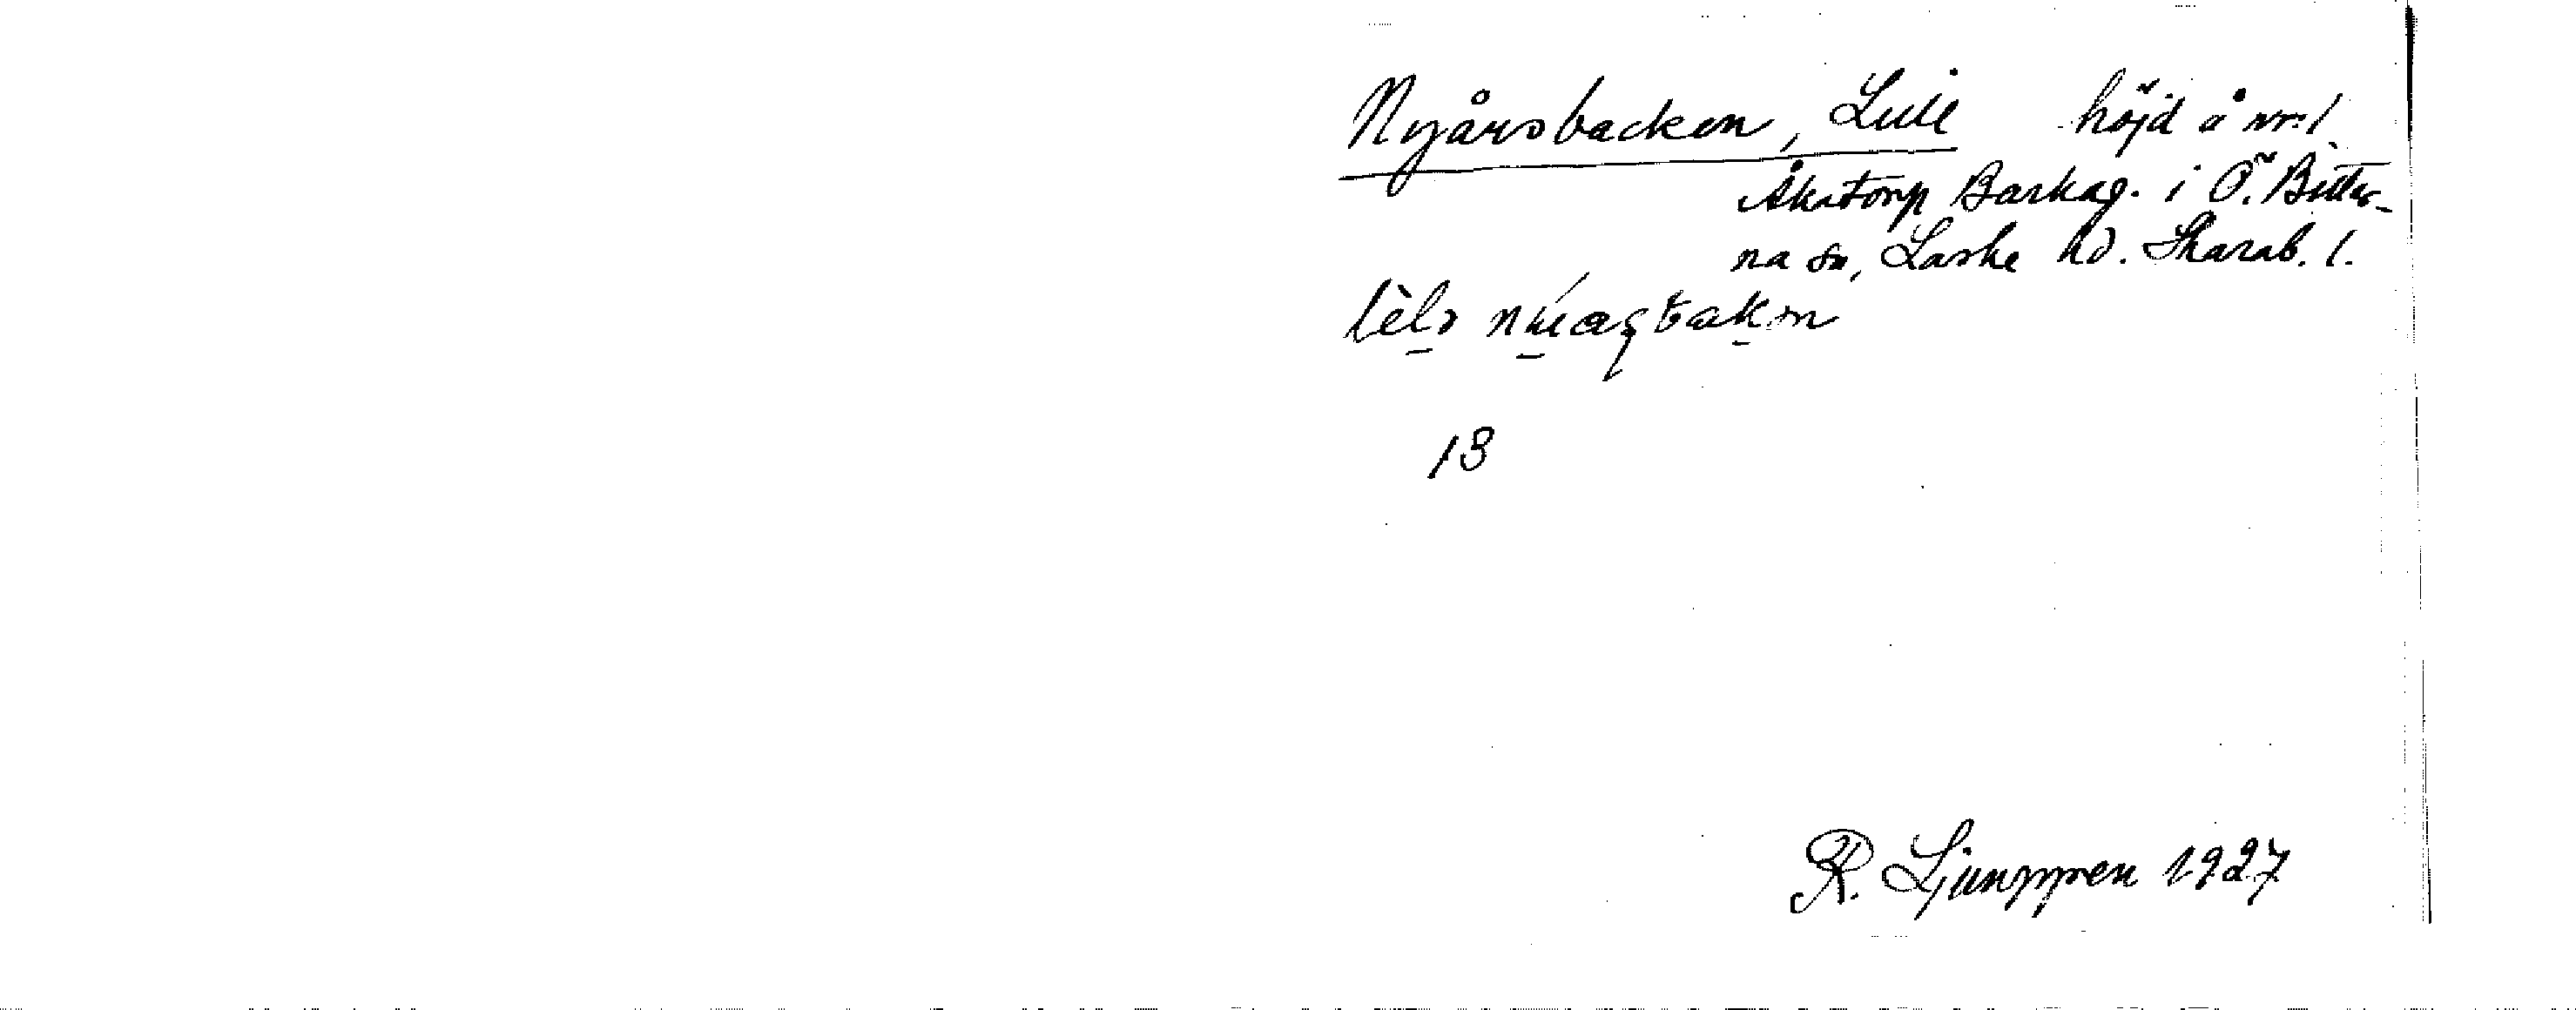 Nyårsbacken, Lille höjd å nr 1
Åkatorp Barkag. i Ö. Bitter-
na sn, Laske hd. Skarab. l.
13
R. Ljunggren 1927